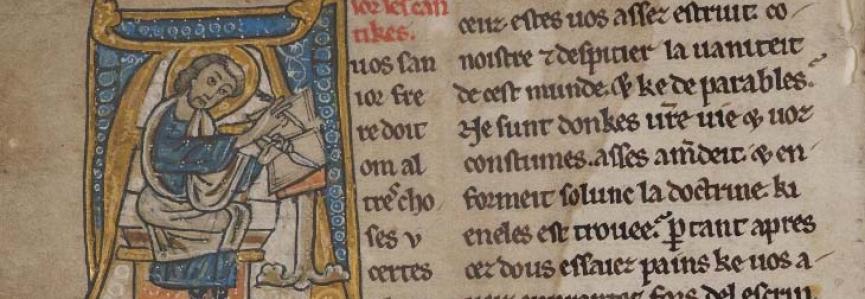 ior les can
tikes.
uos san
ior fre
re doit
om al
tres cho
ses v
certes
ceur estes uos assez estruit. co
noistre ⁊ despitier la uaniteit
de cest munde. & ke de parables.
Ne sunt donkes ureͤ uie & uoz
constumes. asses amͤdeit. & en
formeit solunc la doctrine. ki
en eles est trouee. ꝑ tant apres
cez dous essaiez pains ke uos a